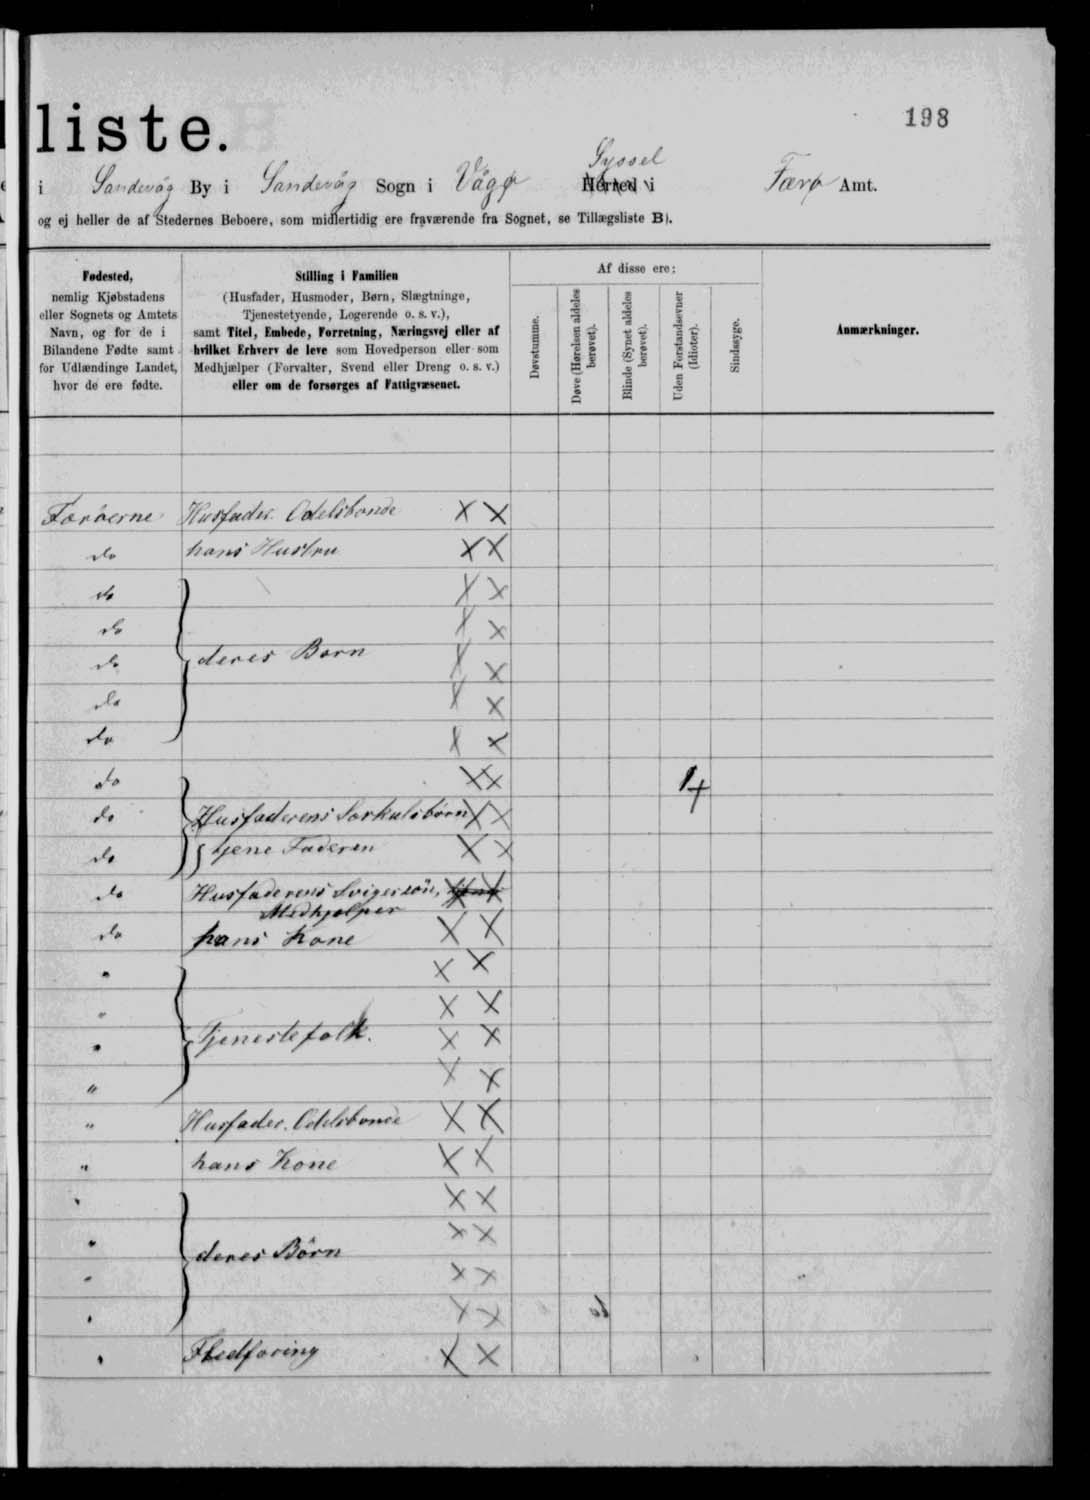 198
liste.
i Sandevåg By i Sandevåg Sogn i Vågø Syssel Herred i Færø Amt.
og ej heller de af Stedernes Beboere, som midlertidig ere fraværende fra Sognet, se Tillægsliste B).
Fødested,
nemlig Kjøbstadens
eller Sognets og Amtets
Navn, og for de i
Bilandene Fødte samt
for Udlændinge Landet,
hvor de ere fødte.
Stilling i Familien
(Husfader, Husmoder, Børn, Slægtninge,
Tjenestetyende, Logerende o. s. v.),
samt Titel, Embede, Forretning, Næringsvej eller af
hvilket Erhverv de leve som Hovedperson eller som
Medhjælper (Forvalter, Svend eller Dreng o. s. v.)
eller om de forsørges af Fattigvæsenet.
Af disse ere:
Døvstumme.
Døve (Hørelsen aldeles
berøvet).
Blinde (Synet aldeles
berøvet).
Uden Forstandsevner
(Idioter).
Sindssyge.
Anmærkninger.
Færöerne Husfader. Odelsbonde X X
do hans Hustru X X
do X X
do X X
do deres Børn X X
do X X
do X X
do X X 1
do Husfaderens Sørkulsbörn X X
do tjene Faderen X X
do Husfaderens Svigersön, X X
Medhjælper
do hans Kone X X
" X X
" X X
" Tjenestefolk. X X
" X X
" Husfader. Odelsbonde X X
" hans Kone X X
" X X
" deres Börn X X
" X X
" X X
" Fledføring X X